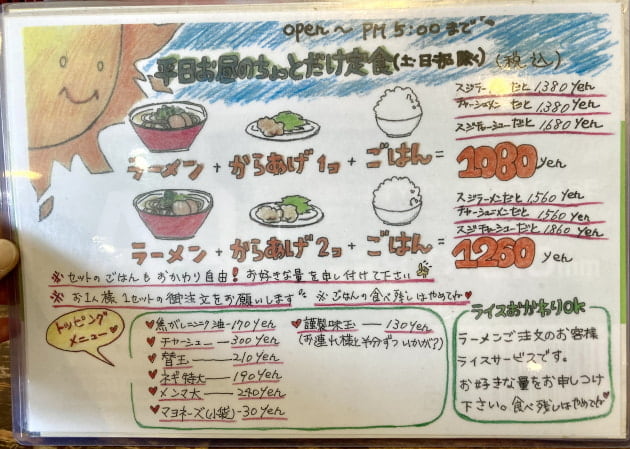 open～PM 5:00まで
平日お昼のちょっとだけ定食(土日祝除く)(税込)
スジラーメンだと 1380 yen
チャーシューメンだと 1380 yen
スジチャーシューだと 1680 yen
ラーメン + からあげ1コ + ごはん = 1080 yen
スジラーメンだと 1560 yen
チャーシューメンだと 1560 yen
スジチャーシューだと 1860 yen
ラーメン + からあげ2コ + ごはん = 1260 yen
※セットのごはんもおかわり自由！お好きな量を申し付けて下さい
※お1人様1セットの御注文をお願いします ※ごはんの食べ残しはやめてね♥
トッピングメニュー♥
♥焦がしニンニク油―190yen
♥チャーシュー―300yen
♥替玉―210yen
♥ネギ特大―190yen
♥メンマ大―240yen
♥マヨネーズ(小袋)-30yen
♥謹製味玉―130yen
(お連れ様と半分ずついかが?)
ライスおかわりOK
ラーメンご注文のお客様
ライスサービスです。
お好きな量をお申しつけ
下さい。食べ残しはやめてね♥